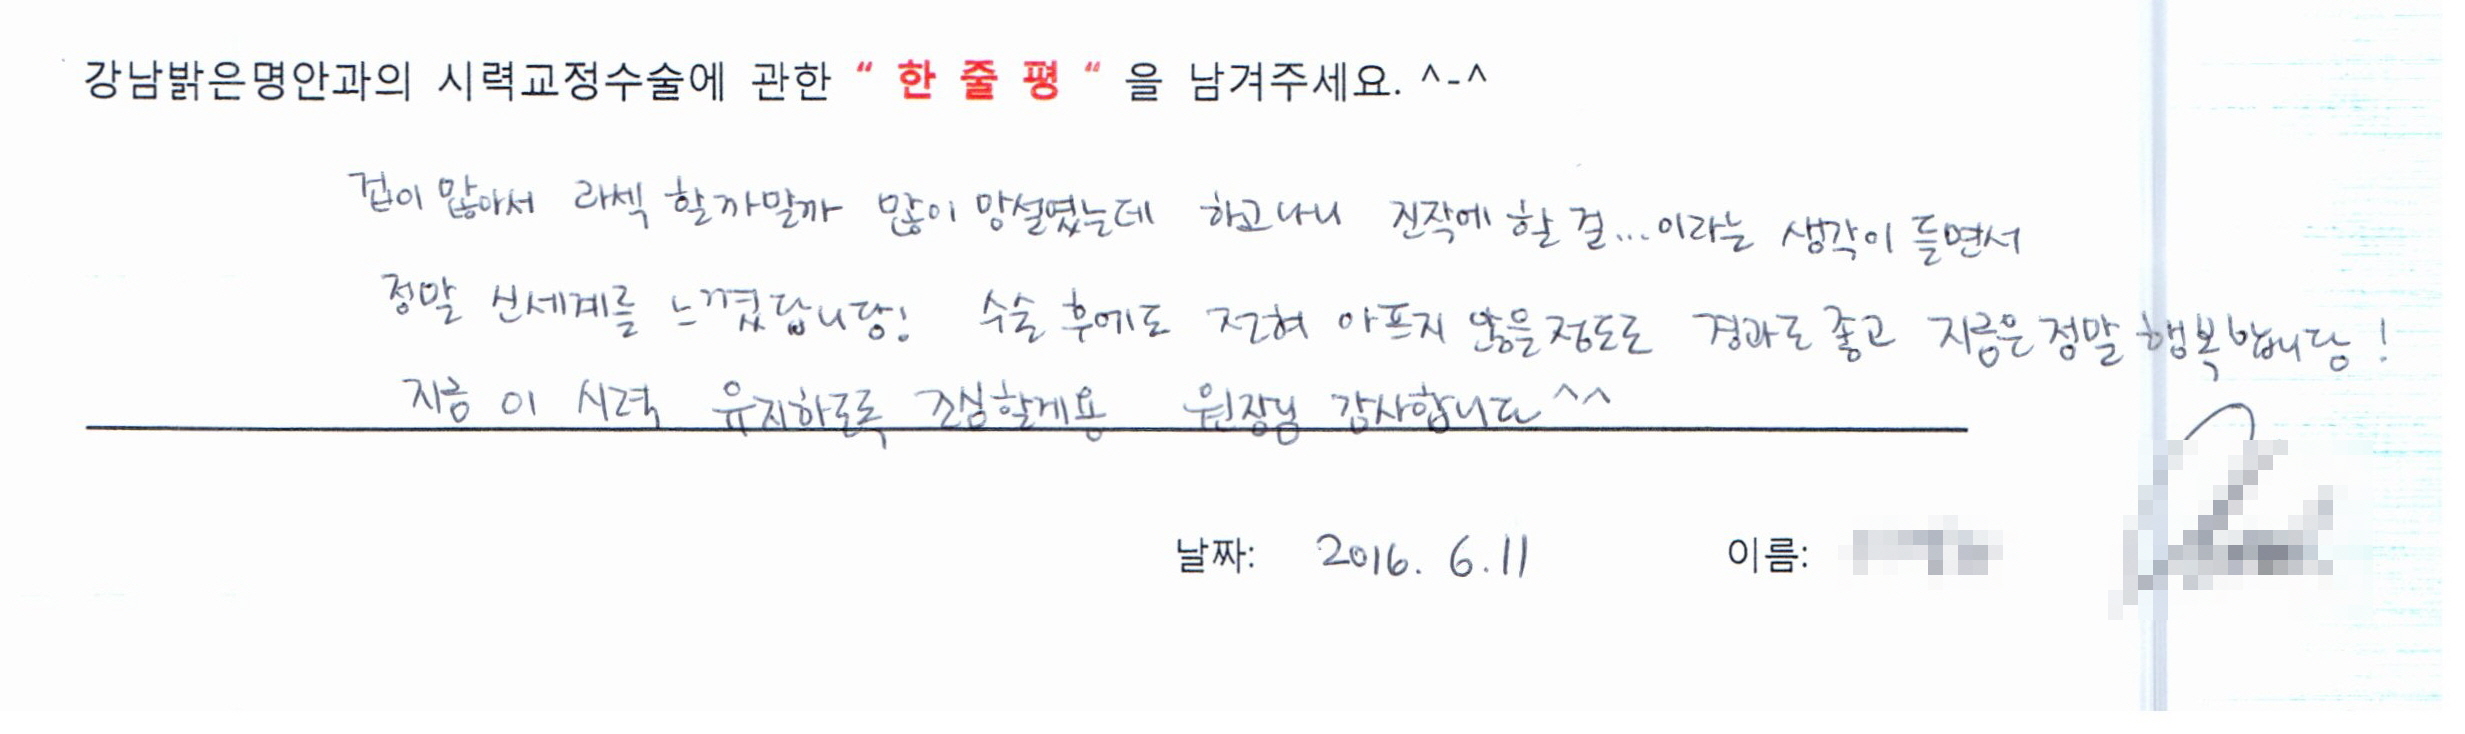 강남밝은명안과의 시력교정수술에 관한 “ 한 줄 평 “ 을 남겨주세요. ^-^
겁이 많아서 라섹 할까말까 많이 망설였는데 하고나니 진작에 할 걸...이라는 생각이 들면서
정말 신세계를 느꼈답니당! 수술 후에도 전혀 아프지 않을정도로 경과도 좋고 지금은 정말 행복합니당!
지금 이 시력 유지하도록 조심할게용 원장님 감사합니다^^
날짜: 2016. 6.11 이름: